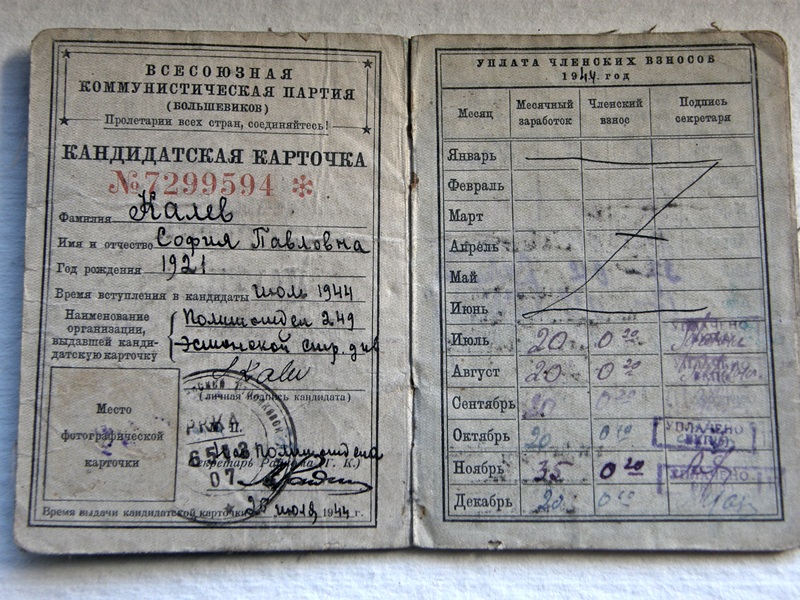 ВСЕСОЮЗНАЯ
КОММУНИСТИЧЕСКАЯ ПАРТИЯ
(БОЛЬШЕВИКОВ)
Пролетарии всех стран, соединяйтесь!
КАНДИДАТСКАЯ КАРТОЧКА
№ 7299594 *
Фамилия Калев
Имя и отчество София Павловна
Год рождения 1921
Время вступления в кандидаты июль 1944
Наименование организации, выдавшей кандидатскую карточку
Политотдел 249
Эстонской стр. див
(личная подпись кандидата)
Место
фотографической
карточки
Нач политотдела
Секретарь Райкома (Г. К.)
Время выдачи кандидатской карточки 20 июля 1944 г.
УПЛАТА ЧЛЕНСКИХ ВЗНОСОВ
1944 год
Месяц Месячный заработок Членский взнос Подпись секретаря
Январь
Февраль
Март
Апрель
Май
Июнь
Июль 20 0 20 УПЛАЧЕНО
Август 20 0 20
Сентябрь 20
Октябрь 20 УПЛАЧЕНО
Ноябрь 35 0 20 УПЛАЧЕНО
Декабрь 20